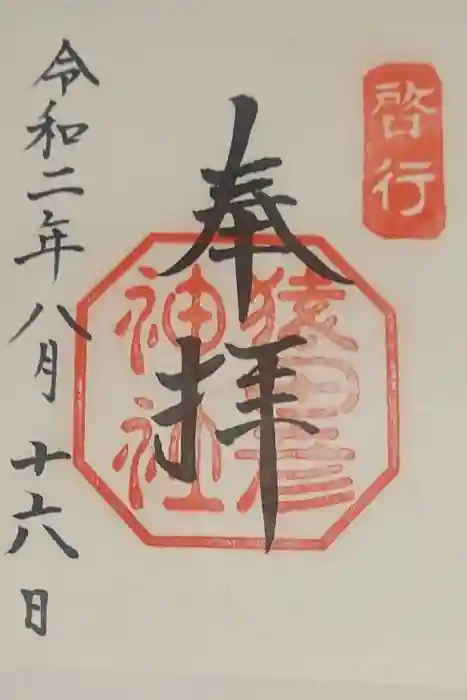 啓行
奉拝
猿田彦
神社
令和二年八月十六日